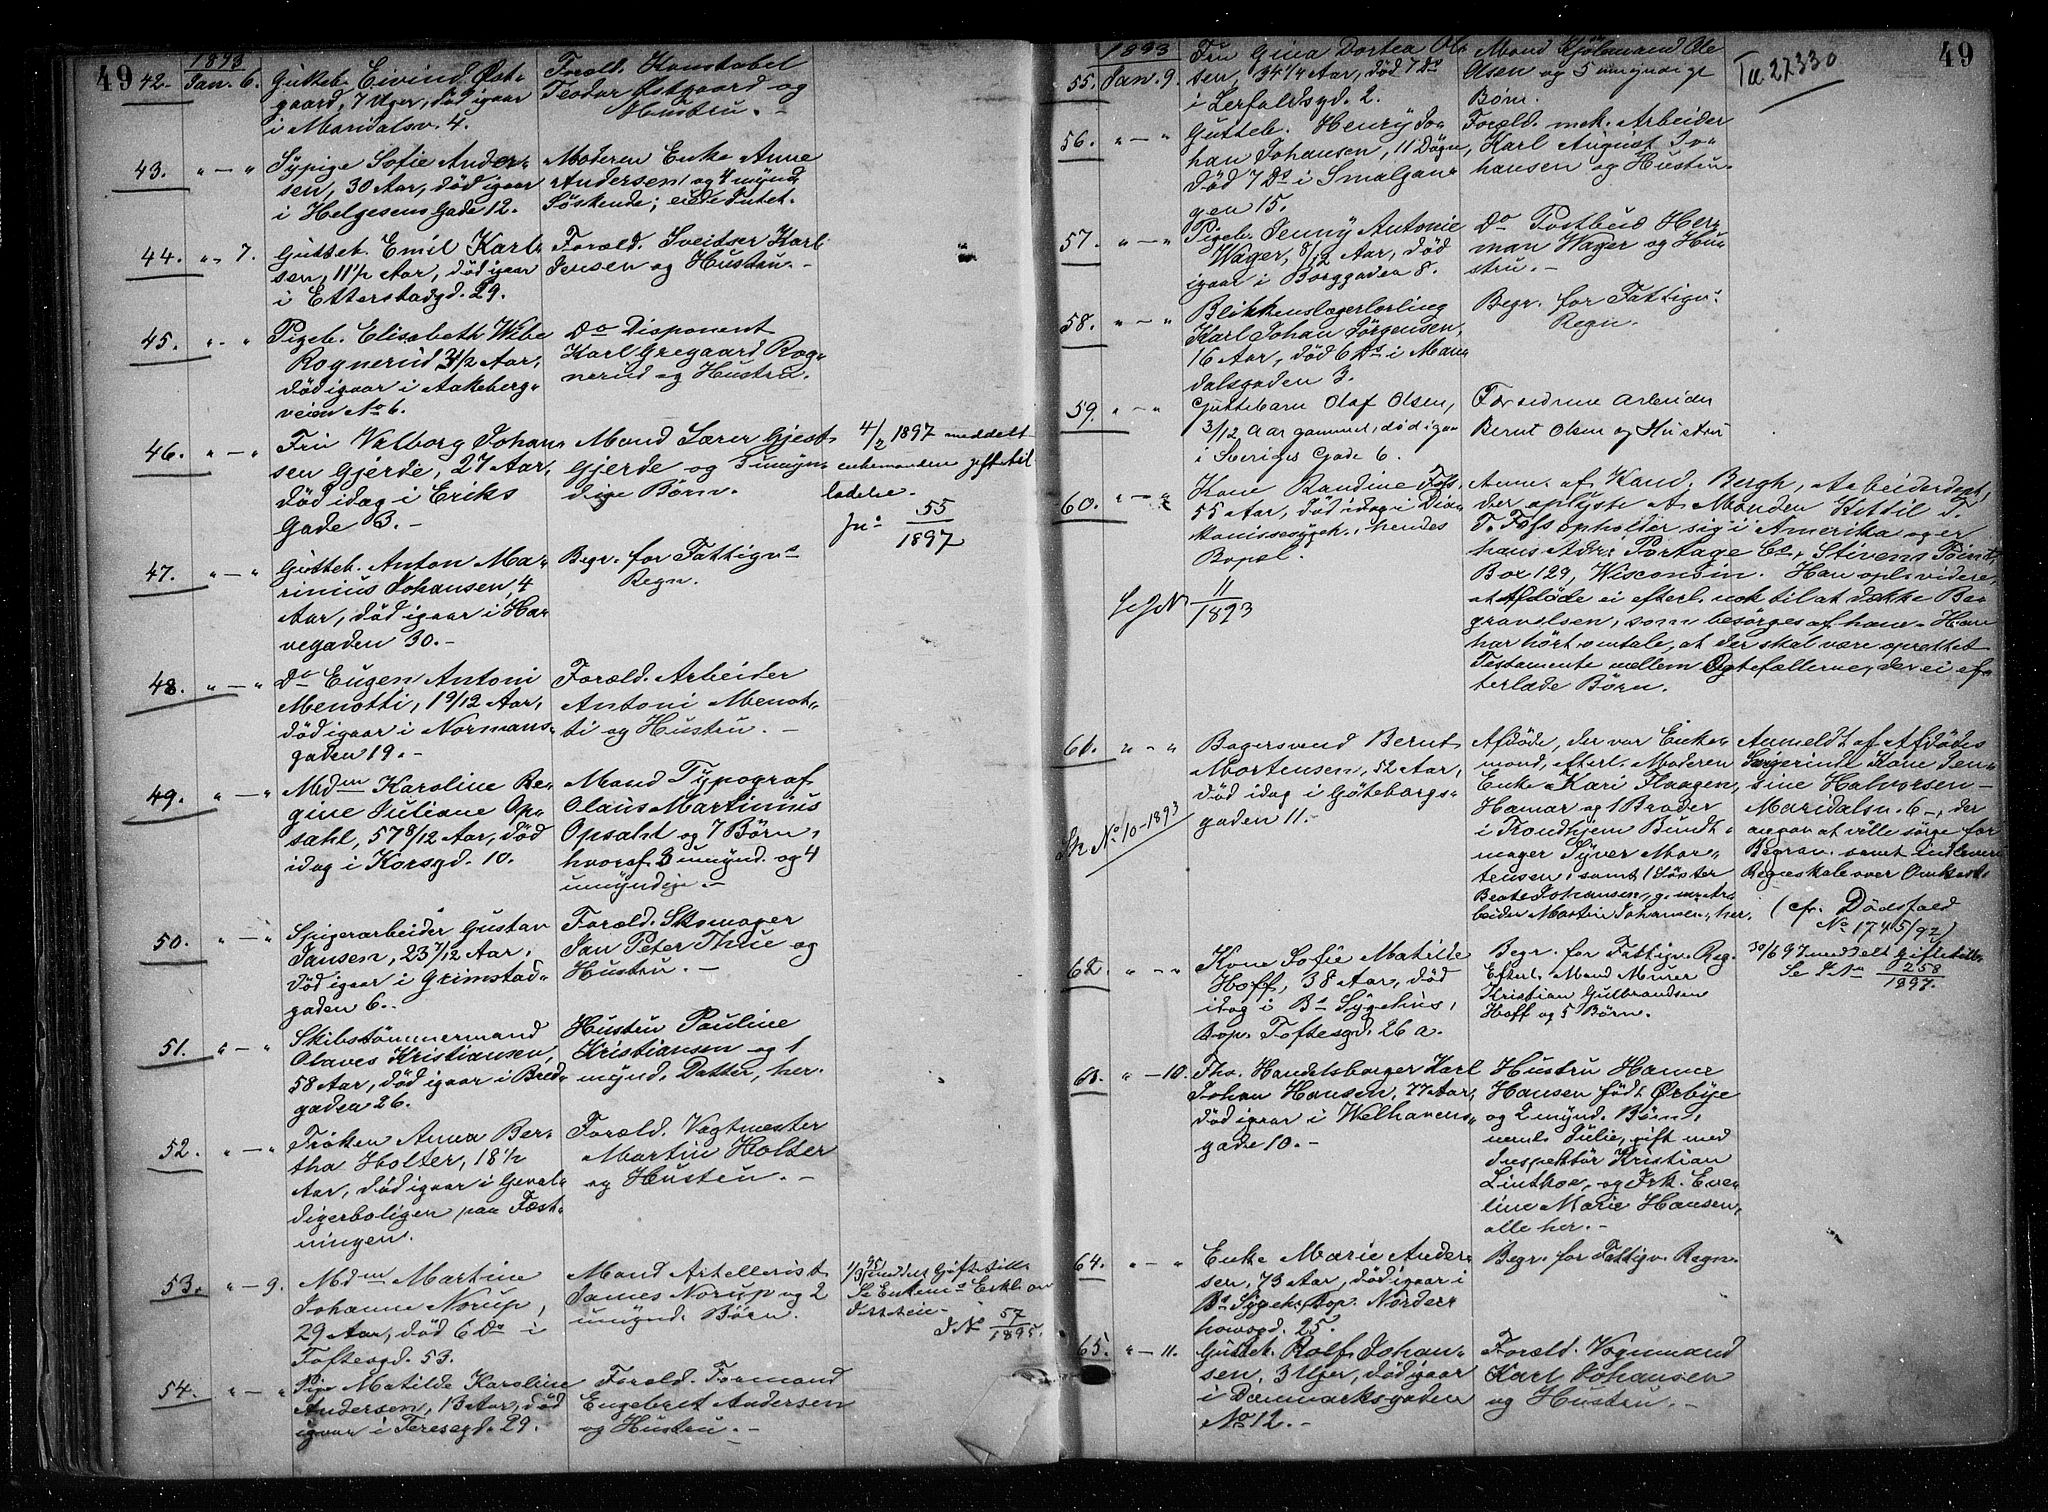 49
1893
42. Jan. 6. Gutteb. Eivind Øst-
gaard, 7 Uger, død igaar
i Maridalsv. 4.
Foræld. Konstabel
Teodor Østgaard og
Hustru. -
43. " - " Sypige Sofie Ander-
sen, 30 Aar, død igaar
i Helgesens Gade 12.
Moderen Enke Anne
Andersen og 4 mynd.
Søskende; eiede Intet.
44. " - 7. Gutteb. Emil Karl
sen, 11 1/2 Aar, død igaar
i Etterstadgd. 29.
Foræld. Sveitser Karl
Jensen og Hustru. -
45. " - " Pigeb. Elisabeth Wibe
Rognerud 3 1/2 Aar,
død igaar i Aakeberg-
veien No 6.
Do Disponent
Karl Gregaard Rog-
nerud og Hustru.
46. " - " Fru Valborg Johan
sen Gjerde, 27 Aar,
død idag i Eriks
Gade 3. -
Mand Lærer Gjest
Gjerde og 3 umyn-
dige Børn.
4/2 1897 meddelt
enkemanden giftetil
ladelse.
Jno 55
1897
47. " - " Gutteb. Anton Ma-
rinius Johansen, 4
Aar, død igaar i Ha-
vegaden 30. -
Begr. for Fattigvs
Regn.
48. " - " Do Eugen Antoni
Menotti, 1 9/12 Aar,
død igaar i Normans-
gaden 19. -
Foræld. Arbeider
Antoni Menot-
ti og Hustru. -
49. " - " Mdm Karoline Re-
gine Juliane Op-
sahl, 57 8/12 Aar, død
idag i Korsgd. 10.
Mand Typograf
Olaus Martinius
Opsahl og 7 Børn,
hvoraf 3 mynd. og 4
umyndige. -
50. " - " Spigerarbeider Gustav
Jansen, 23 7/12 Aar,
død igaar i Grimstad-
gaden 6.
Foræld. Skomager
Jan Peter Thue og
Hustru. -
51. " - " Skibstømmermand
Olaves Kristiansen,
58 Aar, død igaar i Bred-
gaden 26.
Hustru Pauline
Kristiansen og 1
mynd. Datter, her.
52. " - " Frøken Anna Ber-
tha Holter, 18 1/2
Aar, død igaar i Geval-
digerboligen paa Fæst-
ningen.
Foræld. Vagtmester
Martin Holter
og Hustru. -
53. " - 9. Mdm Martine
Johanne Norup,
29 Aar, død 6 Ds i
Toftesgd. 53.
Mand Artellerist
James Norup og 2
umynd. Børn.
1/3 95 meddelt Giftetill.
JNo 57
1895.
54. " - " Pige Matilde Karoline
Andersen, 13 Aar, død
igaar i Teresegd. 29.
Foræld. Formand
Engebret Andersen
og Hustru. -
49
1893
55. Jan. 9. Fru Gina Dortea Ol-
sen, 34 1/4 Aar, død 7 Ds
i Lerfaldsgd. 2.
Mand Kjølmand Ole
Olsen og 5 umyndige
Børn.
Tu 27330
56. " - " Gutteb. Henry Jo-
han Johansen, 11 Døgn,
død 7 Ds i Smalgan-
gen 15.
Foræld. mek. Arbeider
Karl August Jo-
hansen og Hustru.
57. " - " Pigeb. Jenny Antonie
Wager, 8/12 Aar, død
igaar i Borggaden 8.
Do Postbud Her-
man Wager og Hu-
stru. -
58. " - " Blikkenslagerlærling
Karl Johan Jørgensen,
16 Aar, død 6 Ds i Man
dalsgaden 3.
Begr. for Fattigv.
Regn.
59. " - " Guttebarn Olaf Olsen,
3/12 Aar gammel, død igaar
i Sveriges Gade 6.
Forældrene Arbeider
Bernt Olsen og Hustru
60. " - " Kone Randine Foss
55 Aar, død idag i Dia-
konissesygeh., hendes
Bopæl.
11
1893
Anm. af Kand. Bergh, Arbeiderdept,
der oplyste at Manden Ketil T.
T. Foss opholder sig i Amerika og er
hans Adr: Portage Co, Stivens Point,
Box 129, Wisconsin. Han opl. videre,
at Afdøde ei efterl. nok til at dække Be-
gravelsen, som besørges af ham. Han
har hørt omtale, at der skal være oprettet
Testamente mellem Ægtefællerne, der ei ef-
terlade Børn.
61. " - " Bagersvend Bernt
Mortensen, 52 Aar,
død idag i Göteborgs-
gaden 11. -
Sk No 10-1893
Afdøde, der var Enke-
mand, efterl. Moderen
Enke Kari Haagen,
Hamar og 1 Broder
i Trondhjem Bundt-
mager Syver Mor-
tensen, samt 1 Søster
Beate Johansen, g. m. Ar-
beider Martin Johansen, her.
Anmeldt af Afdødes
Kone Jen-
sine Halvorsen -
Maridalsv. 6 -, der
angav at ville sørge for
Begrav. samt indlevere
Regnskab over Omkostn.
(cfr. Dødsfald
No 1745/92)
62. " - " Kone Sofie Matilde
Hoff, 38 Aar, død
idag i Bs Sygehus,
Bop. Toftesgd. 26 a.
Begr. for Fattigv. Reg.
Efterl. Mand Murer
Kristian Gulbrandsen
Hoff og 5 Børn.
30/6 97 meddelt Giftetill.
Se JNo 258
1897.
63. " - 10. Fhv. Handelsborger Karl
Johan Hansen, 77 Aar,
død igaar i Welhavens-
gade 10. -
Hustru Hanne
Hansen født Ørbye
og 2 mynd. Børn,
nemlig Julie, gift med
Inspektør Kristian
Linthoe, og Frk. Eve-
line Marie Hansen,
alle her. -
64. " - " Enke Marie Ander-
sen, 73 Aar, død igaar i
Bs Sygeh., Bop. Norder-
hovsgd. 25.
Begr. for Fattigv. Regn.
65. " - 11. Gutteb. Rolf Johan-
sen, 3 Uger, død igaar
i Danmarksgaden
No 12. -
Foræld. Vognmand
Karl Johansen
og Hustru. -